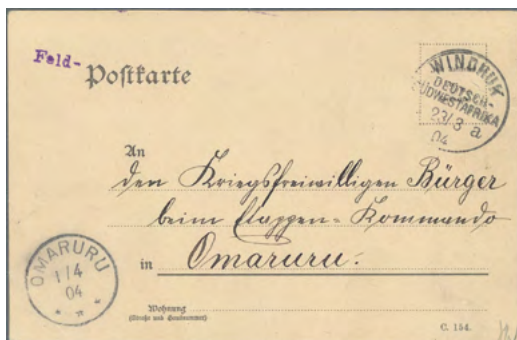 Feld-
Postkarte
WINDHUK
DEUTSCH-
SÜDWESTAFRIKA
23/3 a
04
An
den Kriegsfreiwilligen Bürger
beim Etappen-Kommando
in Omaruru.
OMARURU
1/4
04
Wohnung
(Straße und Hausnummer)
C. 154.